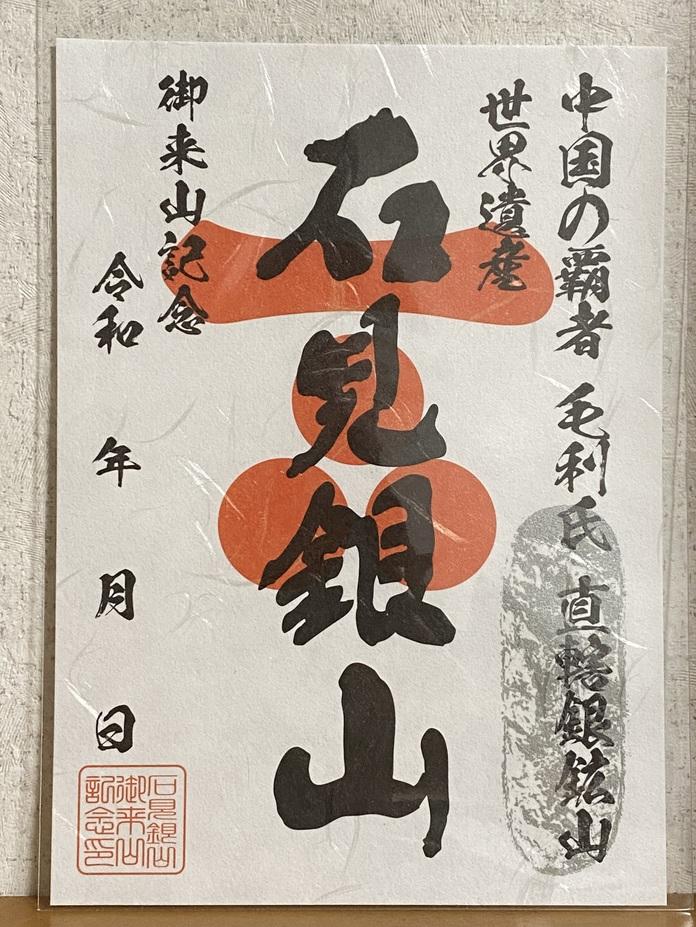 中国の覇者 毛利氏 直轄銀鉱山
世界遺産
石見銀山
御来山記念
令和 年 月 日
石見銀山
御来山
記念印